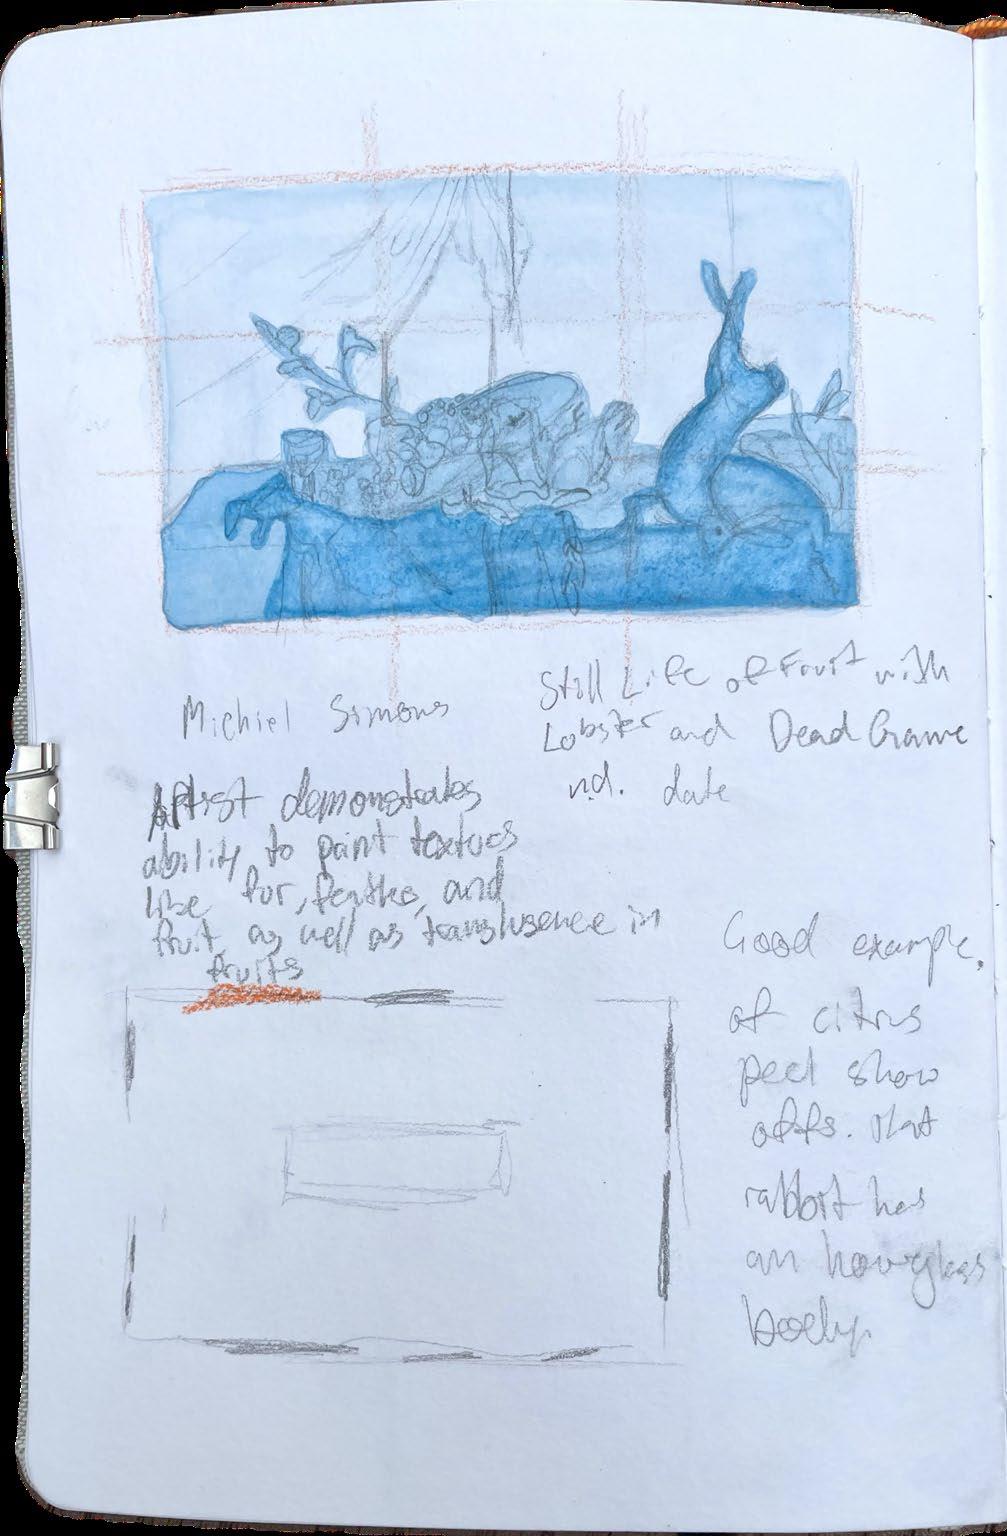 Michiel Simons
Still Life of Fruit with
Lobster and Dead Game
n.d. date
Artist demonstrates
ability to paint textues
like fur, feathe, and
fruit, as well as translusence in
fruits
Good example.
of citrus
peel show
offs. that
rabbit has
an hourglass
body.